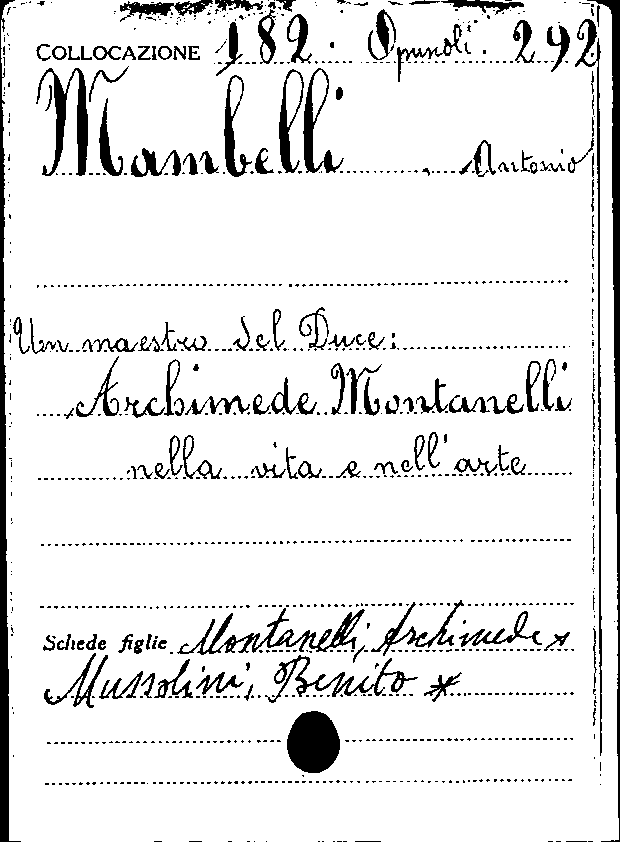 COLLOCAZIONE 182. Opuscoli. 292
Mambelli, Antonio
Un maestro del Duce:
Archimede Montanelli
nella vita e nell'arte
Schede figlie Montanelli, Archimede *
Mussolini, Benito *